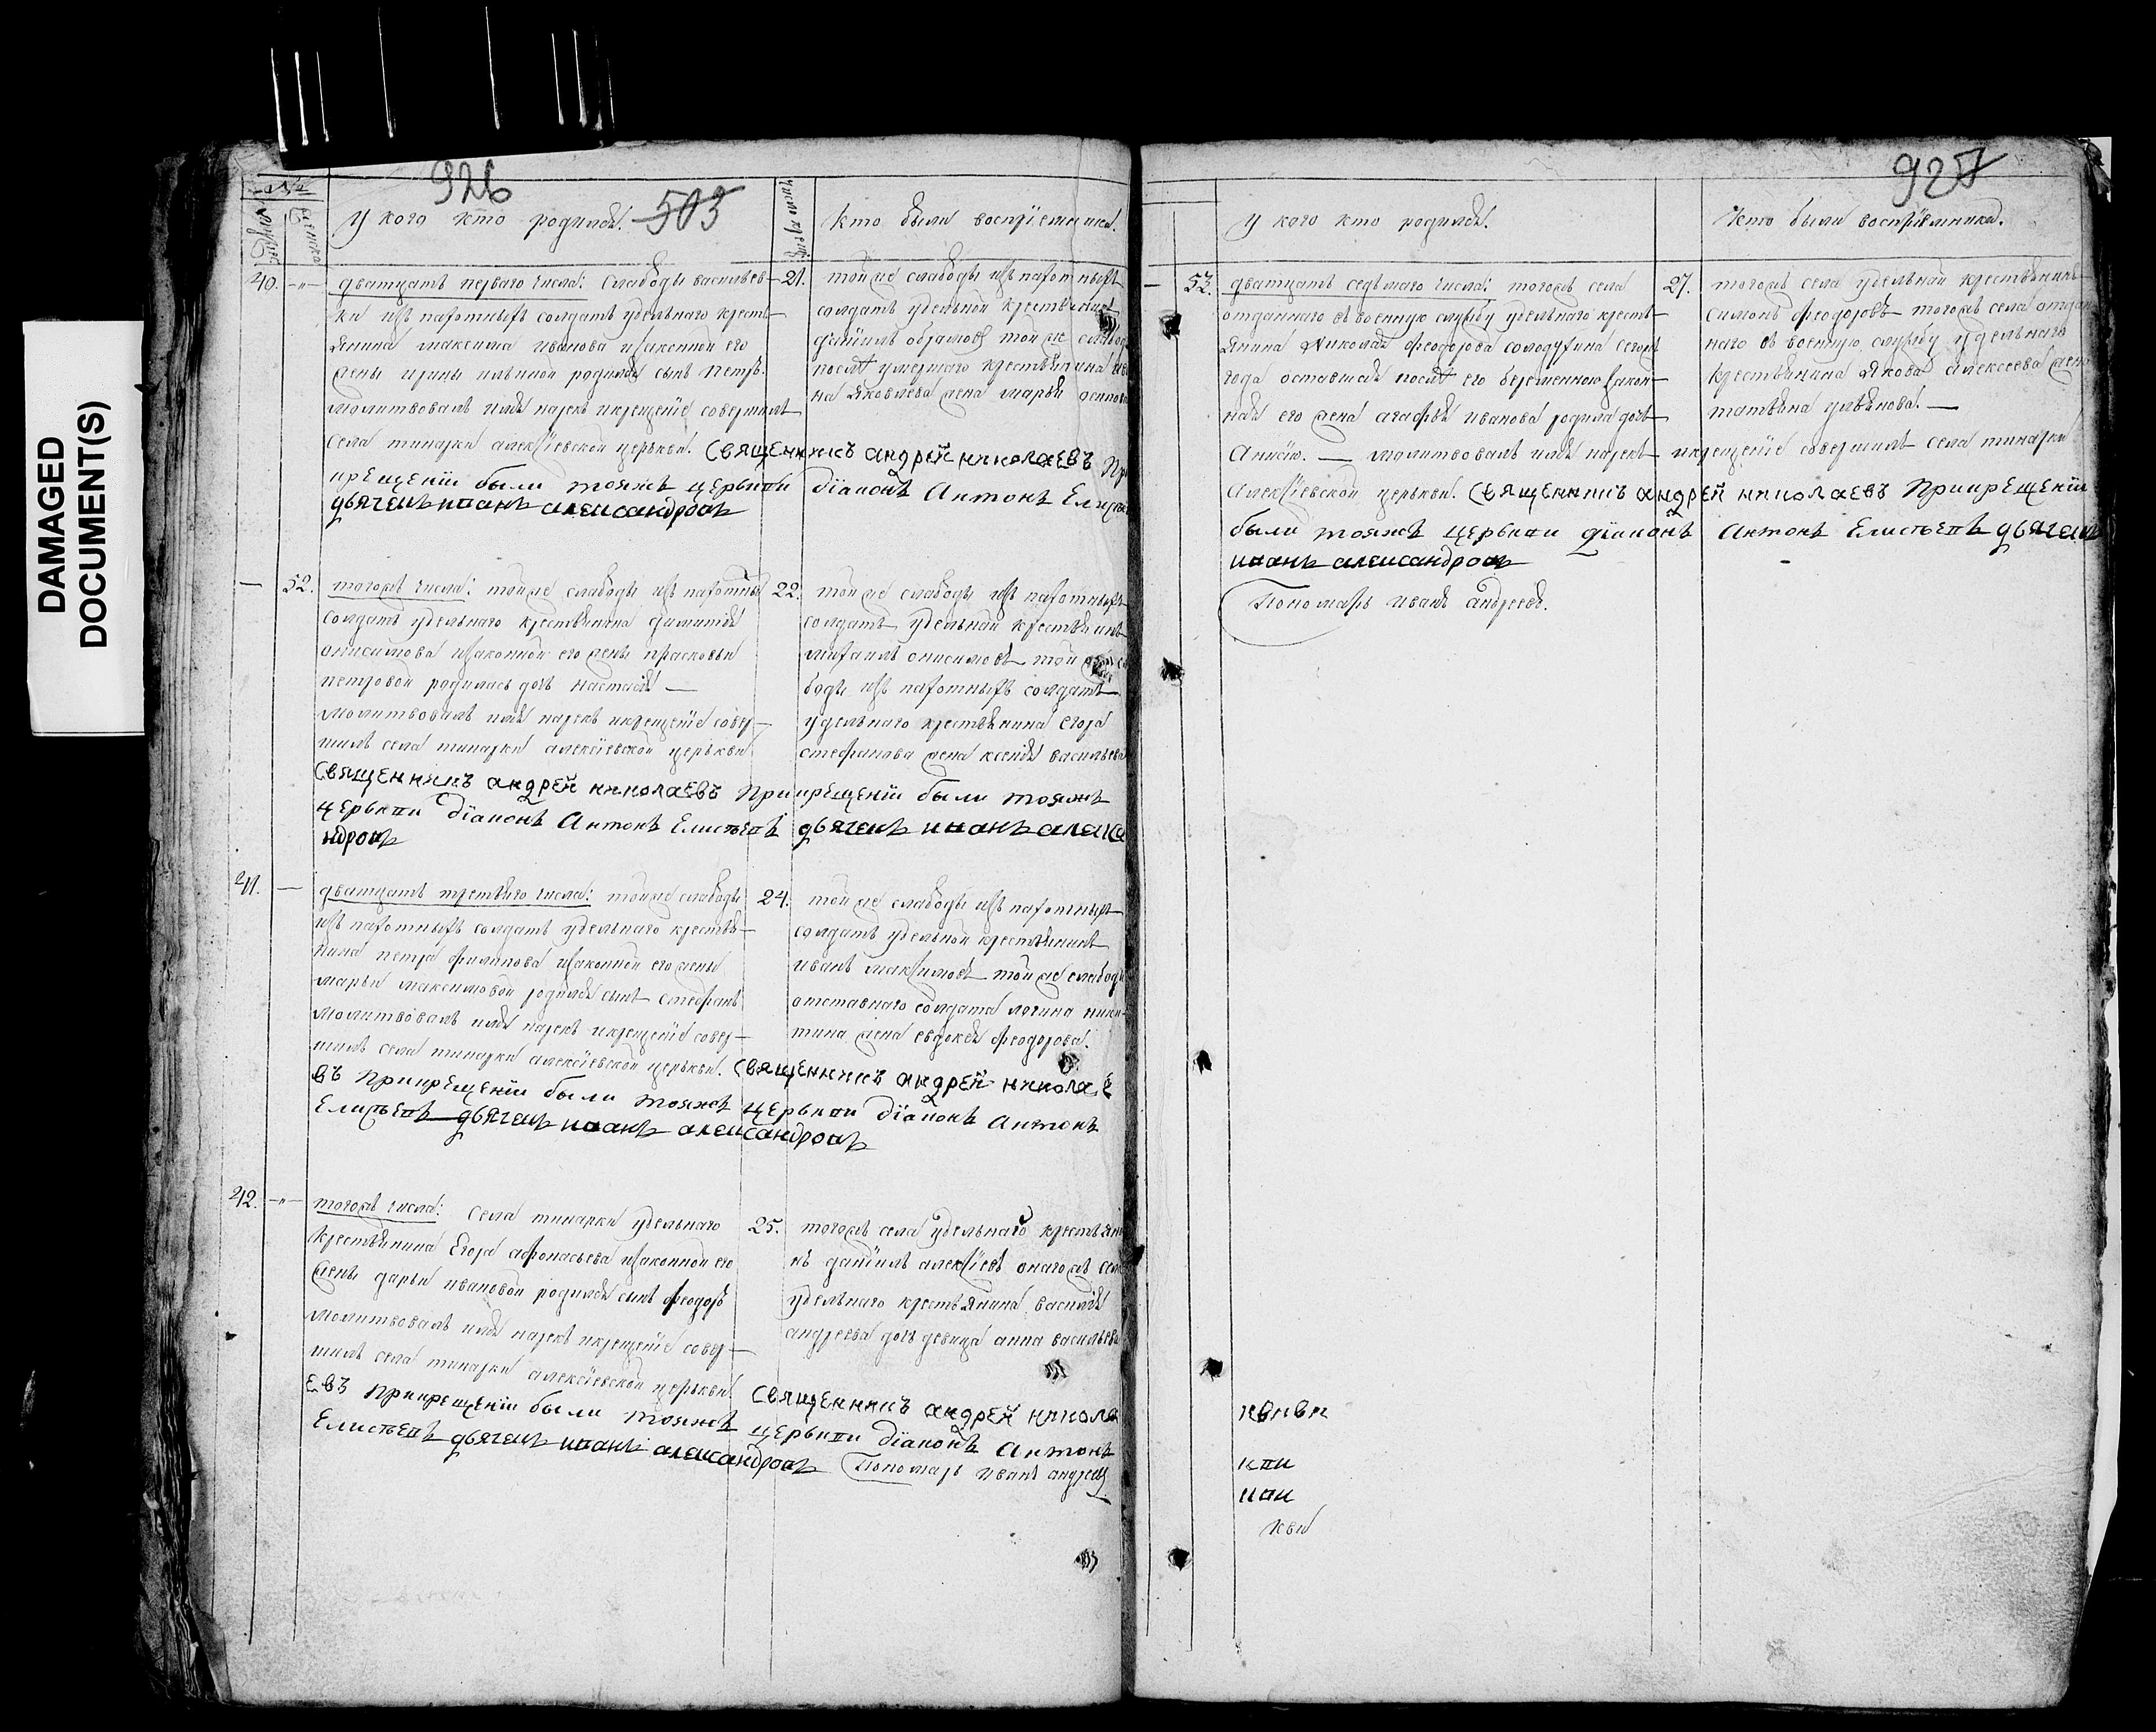 DAMAGED
DOCUMENT(S)
926
503
№
У кого кто родился.
Число крещ
Кто были восприемники.
40. —„— дватцать перваго числа: Слабоды васильев-
ки изъ пахотныхъ солдатъ удельнаго кресть-
янина максима иванова изаконной его
жены ирины ильиной родился сынъ петръ.
молитвовалъ имя нарекъ икрещенїе совершилъ
села тинарки алексїевской церькви. Священникъ андрей николаевъ При
крещенїи были тояжъ церькви дїаконъ Антонъ
дьячекъ иванъ александровъ
21. тойже слабоды изъ пахотныхъ
солдатъ удельной крестьянинъ
тойже слабод
послѣ умершаго крестьянина ива
на яковлева жена марья осипова
— 52. тогожъ числа: тойже слабоды изъ пахотныхъ
солдатъ удельнаго крестьянина
онисимова изаконной его жены прасковьи
петровой родилась дочь настасья —
молитвовалъ имя нарекъ икрещенїе совер-
шилъ села тинарки алексїевской церькви
Священникъ андрей николаевъ Прикрещенїи были тояжъ
церькви дїаконъ Антонъ Елисѣевъ дьячекъ иванъ алекса
ндровъ
22. тойже слабоды изъ пахотныхъ
солдатъ удельной крестьянинъ
михаилъ онисимовъ той
боды изъ пахотныхъ солдатъ
удельнаго крестьянина егора
стефанова жена ксенія васильева
41. — дватцать третьяго числа: тойже слабоды
изъ пахотныхъ солдатъ удельнаго крестья-
нина петра филипова изаконной его жены
марьи максимовой родился сынъ стефанъ
молитвовалъ имя нарекъ икрещенїе совер-
шилъ села тинарки алексїевской церькви. Священникъ андрей никола е
въ Прикрещенїи были тояжъ церькви дїаконъ Антонъ
Елисѣевъ дьячекъ иванъ александровъ
24. тойже слабоды изъ пахотныхъ
солдатъ удельной крестьянинъ
иванъ максимовъ тойже слабоды
отставнаго солдата логина ники-
тина жена евдокея феодорова.
42. —„— тогожъ числа: Села тинарки удельнаго
крестьянина Егора афонасьева изаконной его
жены дарьи ивановой родился сынъ феодоръ
молитвовалъ имя нарекъ икрещенїе совер-
шилъ села тинарки алексїевской церькви. Священникъ андрей никола
евъ Прикрещенїи были тояжъ церькви дїаконъ Антонъ
Елисѣевъ дьячекъ иванъ александровъ Пономарь иванъ андреевъ
25. тогожъ села удельнаго крестьяни
нъ данїилъ алексїевъ онагожъ села
удельнаго крестьянина василья
андреева дочь девица анна васильева
927
У кого кто родился.
Кто были восприемники.
— 53. дватцать седьмаго числа: тогожъ села
отданнаго въ военную службу удельнаго кресть-
янина Николая феодорова солодухина сегожъ
года оставшая послѣ его беременною закон-
ная его жена агафья иванова родила дочь
Анисїю. — молитвовалъ имя нарекъ икрещенїе совершилъ села тинарки
Алексїевской церькви. Священникъ андрей николаевъ Прикрещенїи
были тояжъ церькви дїаконъ Антонъ Елисѣевъ дьячекъ
иванъ александровъ
Пономарь иванъ андреевъ.
27. тогожъ села удельной крестьянинъ
симонъ феодоровъ тогожъ села отдан
наго въ военную службу удельнаго
крестьянина якова алексеева жена
татьяна ульянова. —
кви